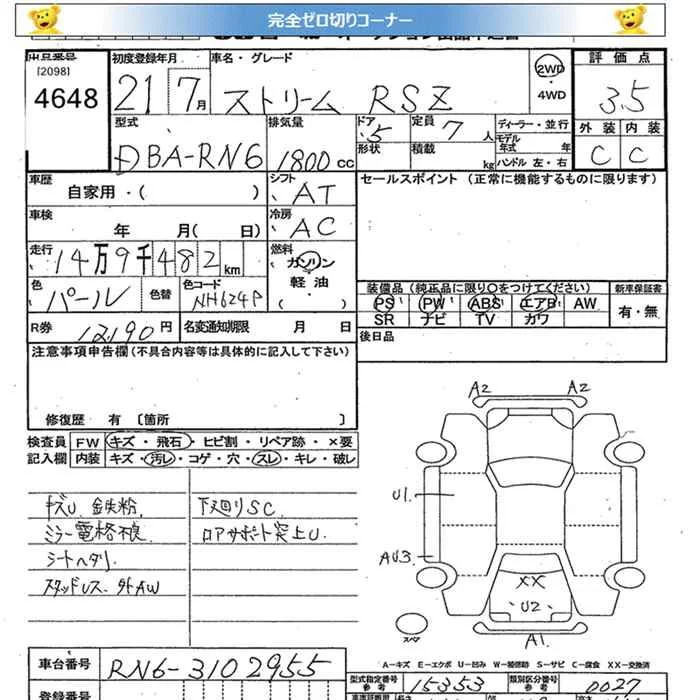 完全ゼロ切りコーナー
出品番号
[2098]
4648
初度登録年月
21 7月
車名・グレード
ストリーム RSZ
2WD
・
4WD
評価点
3.5
外装 内装
C C
型式
DBA-RN6
排気量
1800 cc
ドア 5
形状
定員 7人
積載 kg
ディーラー・並行
モデル年式 年
ハンドル 左・右
車歴
自家用・( )
シフト
AT
車検
年 月( 日)
冷房
AC
走行
14万9千482km
燃料
ガソリン
軽油
( ・ )
色
パール
色替
色コード
NH624P
R券
12,190円
名変通知期限 月 日
セールスポイント (正常に機能するものに限ります)
装備品(純正品に限り○をつけてください)
PS PW ABS エアB AW
SR ナビ TV カワ
新車保証書
有・無
後日品
注意事項申告欄(不具合内容等は具体的に記入して下さい)
修復歴 有 〔箇所 〕
検査員記入欄
FW キズ・飛石・ヒビ割・リペア跡・×要
内装 キズ・汚レ・コゲ・穴・スレ・キレ・破レ
キズU 鉄粉.
ミラー電格不良
シートヘタリ
スタッドレス. 外AW
下廻りSC
ロアサポート突上U.
A2 A2
U1
AU3
XX
U2
A1
スペア
A−キズ E−エクボ U−凹み W−補修跡 S−サビ C−腐食 XX−交換済
車台番号
RN6-3102955
型式指定番号
参考
15353
類別区分番号
参考
0027
登録番号